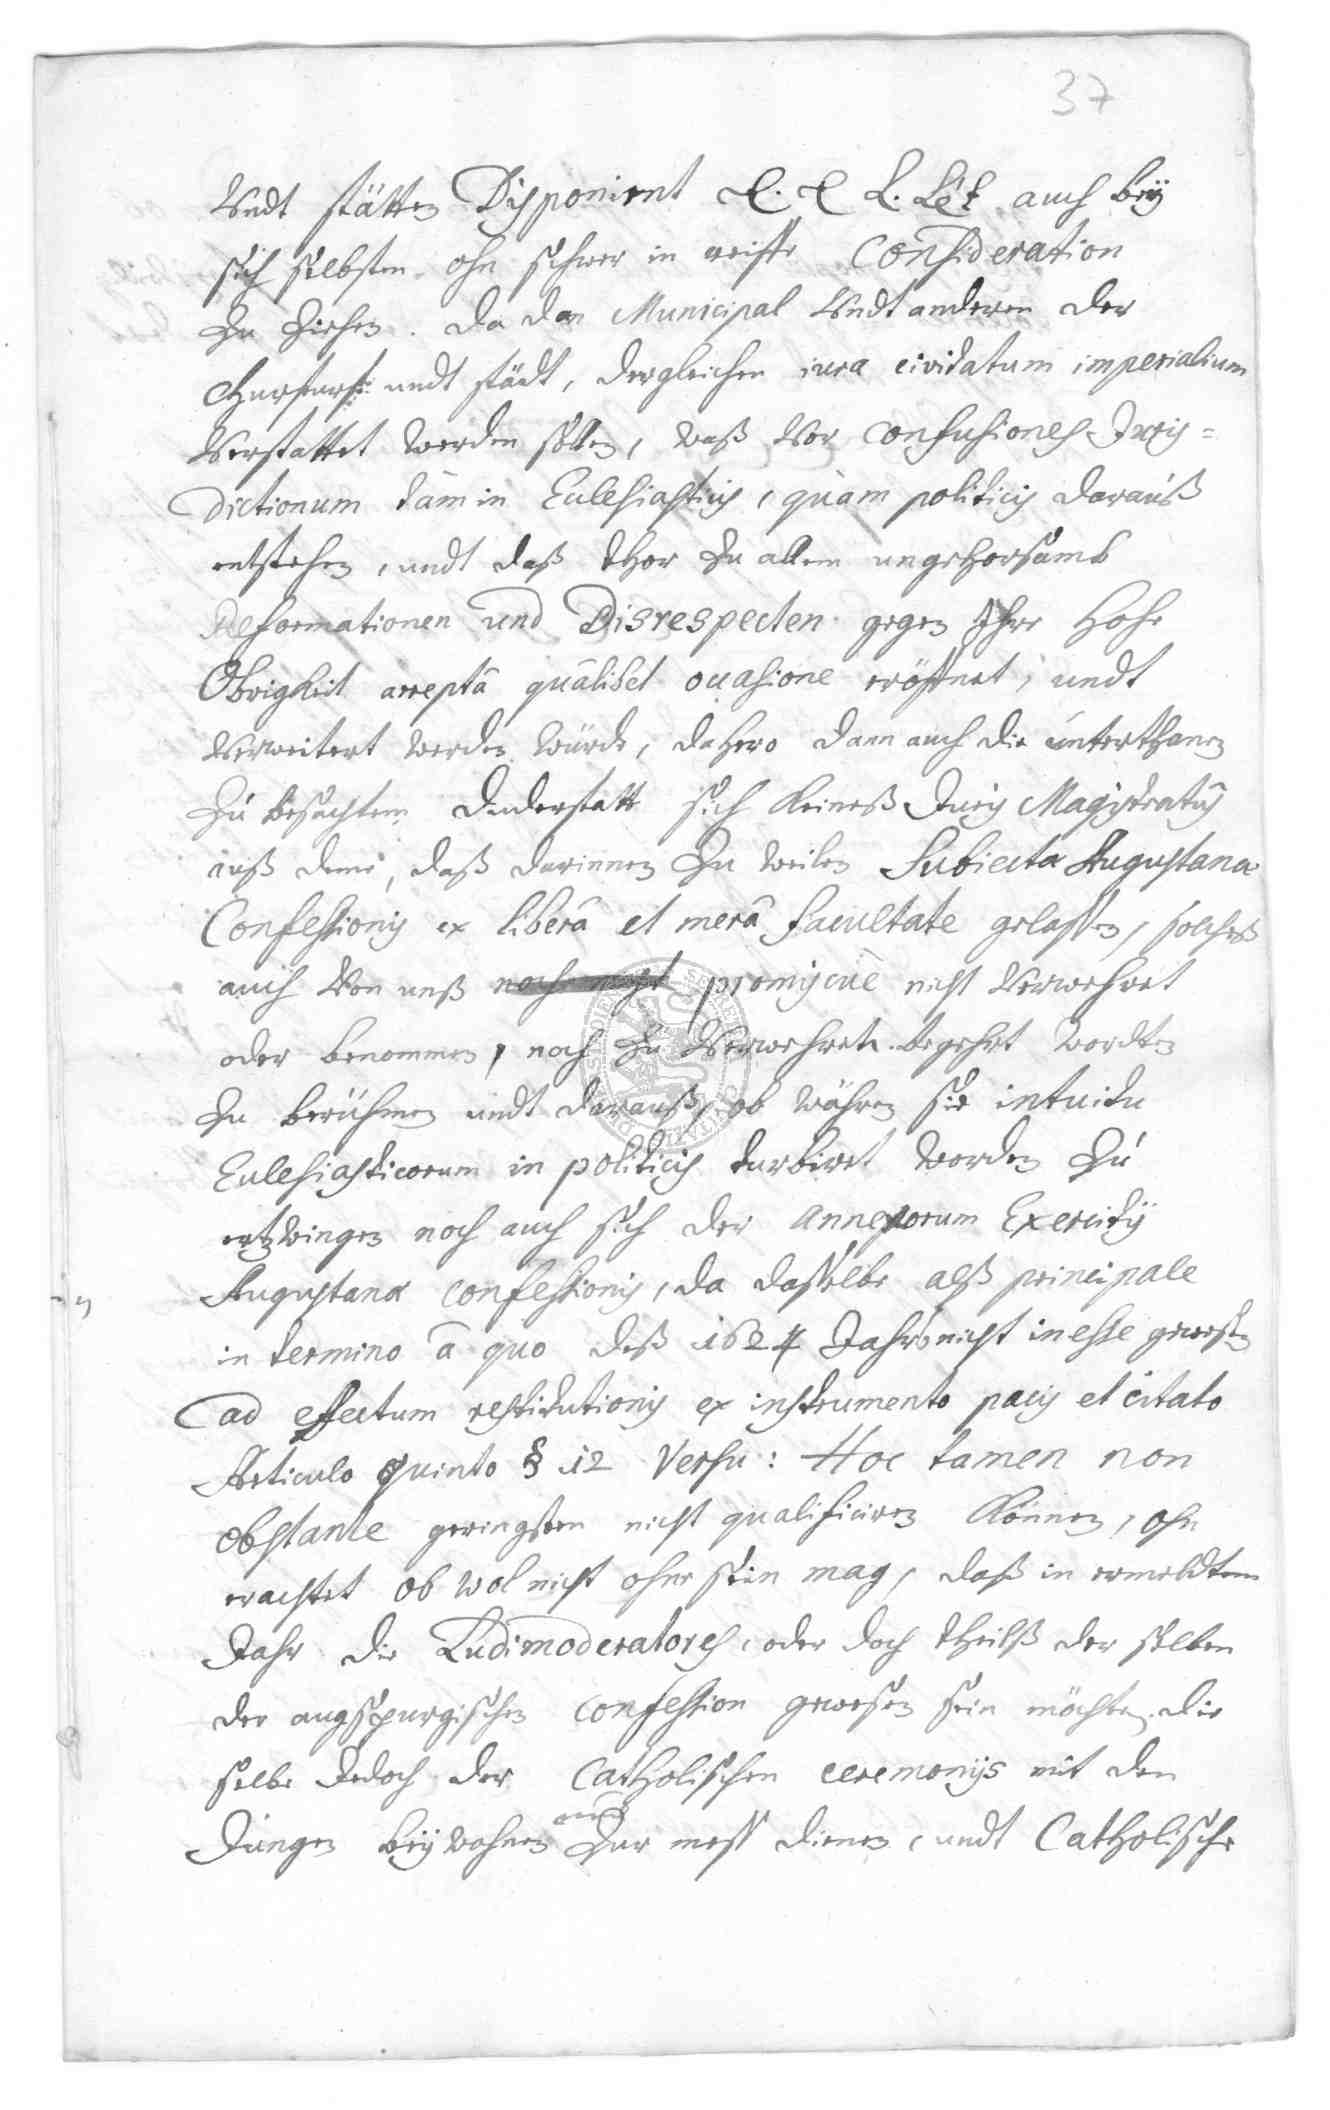 37
Vndt stätten Disponirt E. E L. L. L. auch beÿ
sich selbsten ohn schwer in reiffe Consideration
Zu Ziehen. da den Municipal Vndt anderen der
Churfürst: undt städt, dergleichen iura civitatum imperialium
Verstattet werden solten, waß Vor Confusiones Juris=
dictionum tàm in Ecclesiasticis, quàm politicis darauß
entstehen, undt daß thor Zu allem ungehorsamb
Reformationen und Disrespecten gegen Ihre Hohe
Obrigkeit arreptâ quâlibet occasione eröffnet, undt
Verweitert werden würde, dahero dann auch die unterthanen
Zu besachtem Duderstatt sich keineß Juris Magistratûs
auß deme, daß darinnen Zu weilen Subiecta Augustanæ
Confessionis ex liberâ et merâ facultate gelassen, solcheß
auch Von unß noch nicht promiscuè nicht Verwehret
oder benommen, noch Zu Verwehren begehrt wordten
Zu berühmen undt darauß, ob währen sie intuitu
Ecclesiasticorum in politicis turbiret worden Zu
erzwingen noch auch sich der annexorum Exercitÿ
Augustanæ confessionis, da dasselbe alß principale
in termino â quo deß 1624 Jahrs nicht in esse gewesen
ad effectum restitutionis ex instrumento pacis et citato
Articulo quinto § 12 Versu: Hoc tamen non
obstante geringsten nicht qualificiren können, ohn
erachtet ob wol nicht ohne sein mag, daß in ermeldtem
Jahr die Ludimoderatores, oder doch theilß der selben
der augspurgischen confession gewesen sein möchten. die
selbe Jedoch der Catholischen ceremonijs mit den
Jungen beÿ wohnen auch Zur mess dienen, undt Catholische